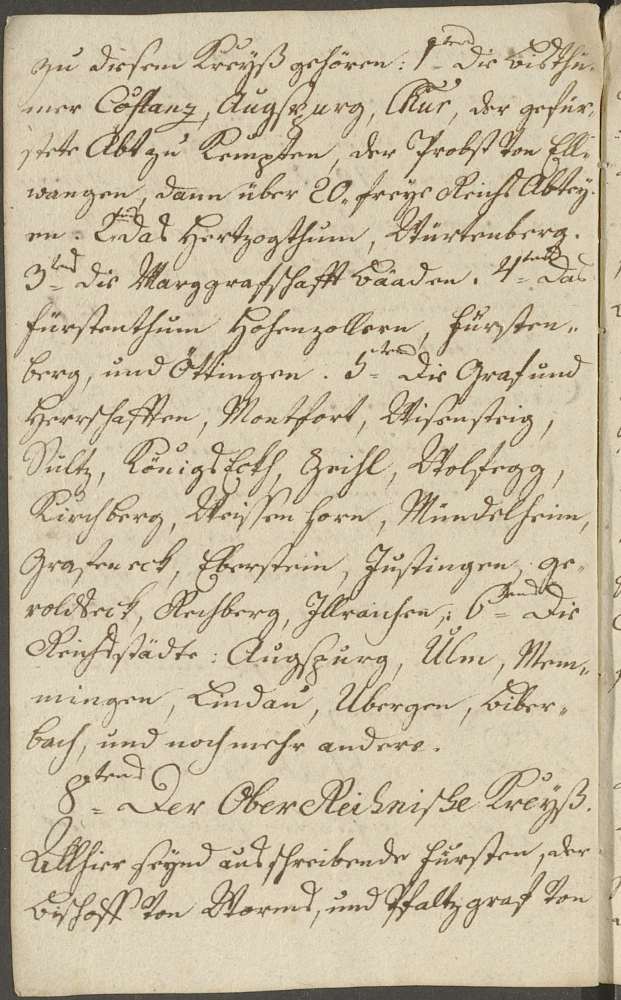 zu diesem Kreyß gehören: 1tend die Bisthü-
mer Costanz, Augspurg, Chur, der gefür-
stete Abt zu Kempten, der Probst von Ell-
wangen, dann über 20. freye Reichs Abtey-
en. 2tend das Hertzogthum, Würtenberg.
3tend die Marggrafschafft Baaden. 4tend das
Fürstenthum Hohenzollern, Fürsten-
berg, und Öttingen. 5tend Die Graf und
Herrschafften, Montfort, Wisensteig,
Sultz, KönigsEcth, Zeihl, Wolfegg,
Kirchberg, Weissenhorn, Mündelheim,
Grafeneck, Eberstein, Justingen, ge-
roldseck, Rechberg, Illraichen,: 6tend Die
Reichsstädte: Augspurg, Ulm, Mem-
mingen, Lindau, Ubergen, Biber-
bach, und noch mehr andere.
8tend Der Ober Reihnische Kreyß.
Allhier seynd ausschreibende Fürsten, der
Bischoff von Worms, und Pfaltzgraf von